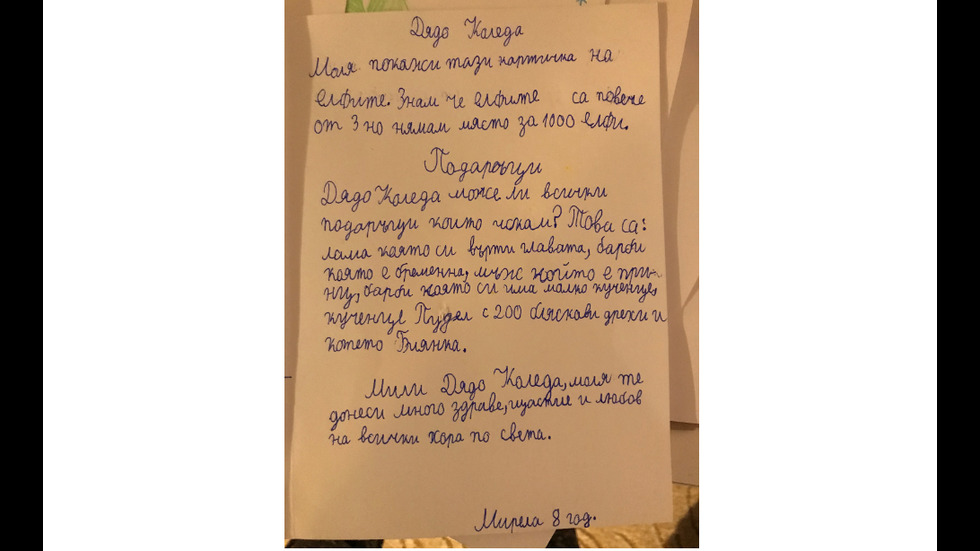 Дядо Коледа
Моля покажи тази картичка на
елфите. Знам че елфите са повече
от 3 но нямам място за 1000 елфи.
Подаръци
Дядо Коледа може ли всички
подаръци които искам? Това са:
лама която си върти главата, барби
която е бременна, мъж който е при-
нц, барби която си има малко кученце,
кученце Пудел с 200 бляскави дрехи и
котето Биянка.
Мили Дядо Коледа, моля те
донеси много здраве, щастие и любов
на всички хора по света.
Мирела 8 год.